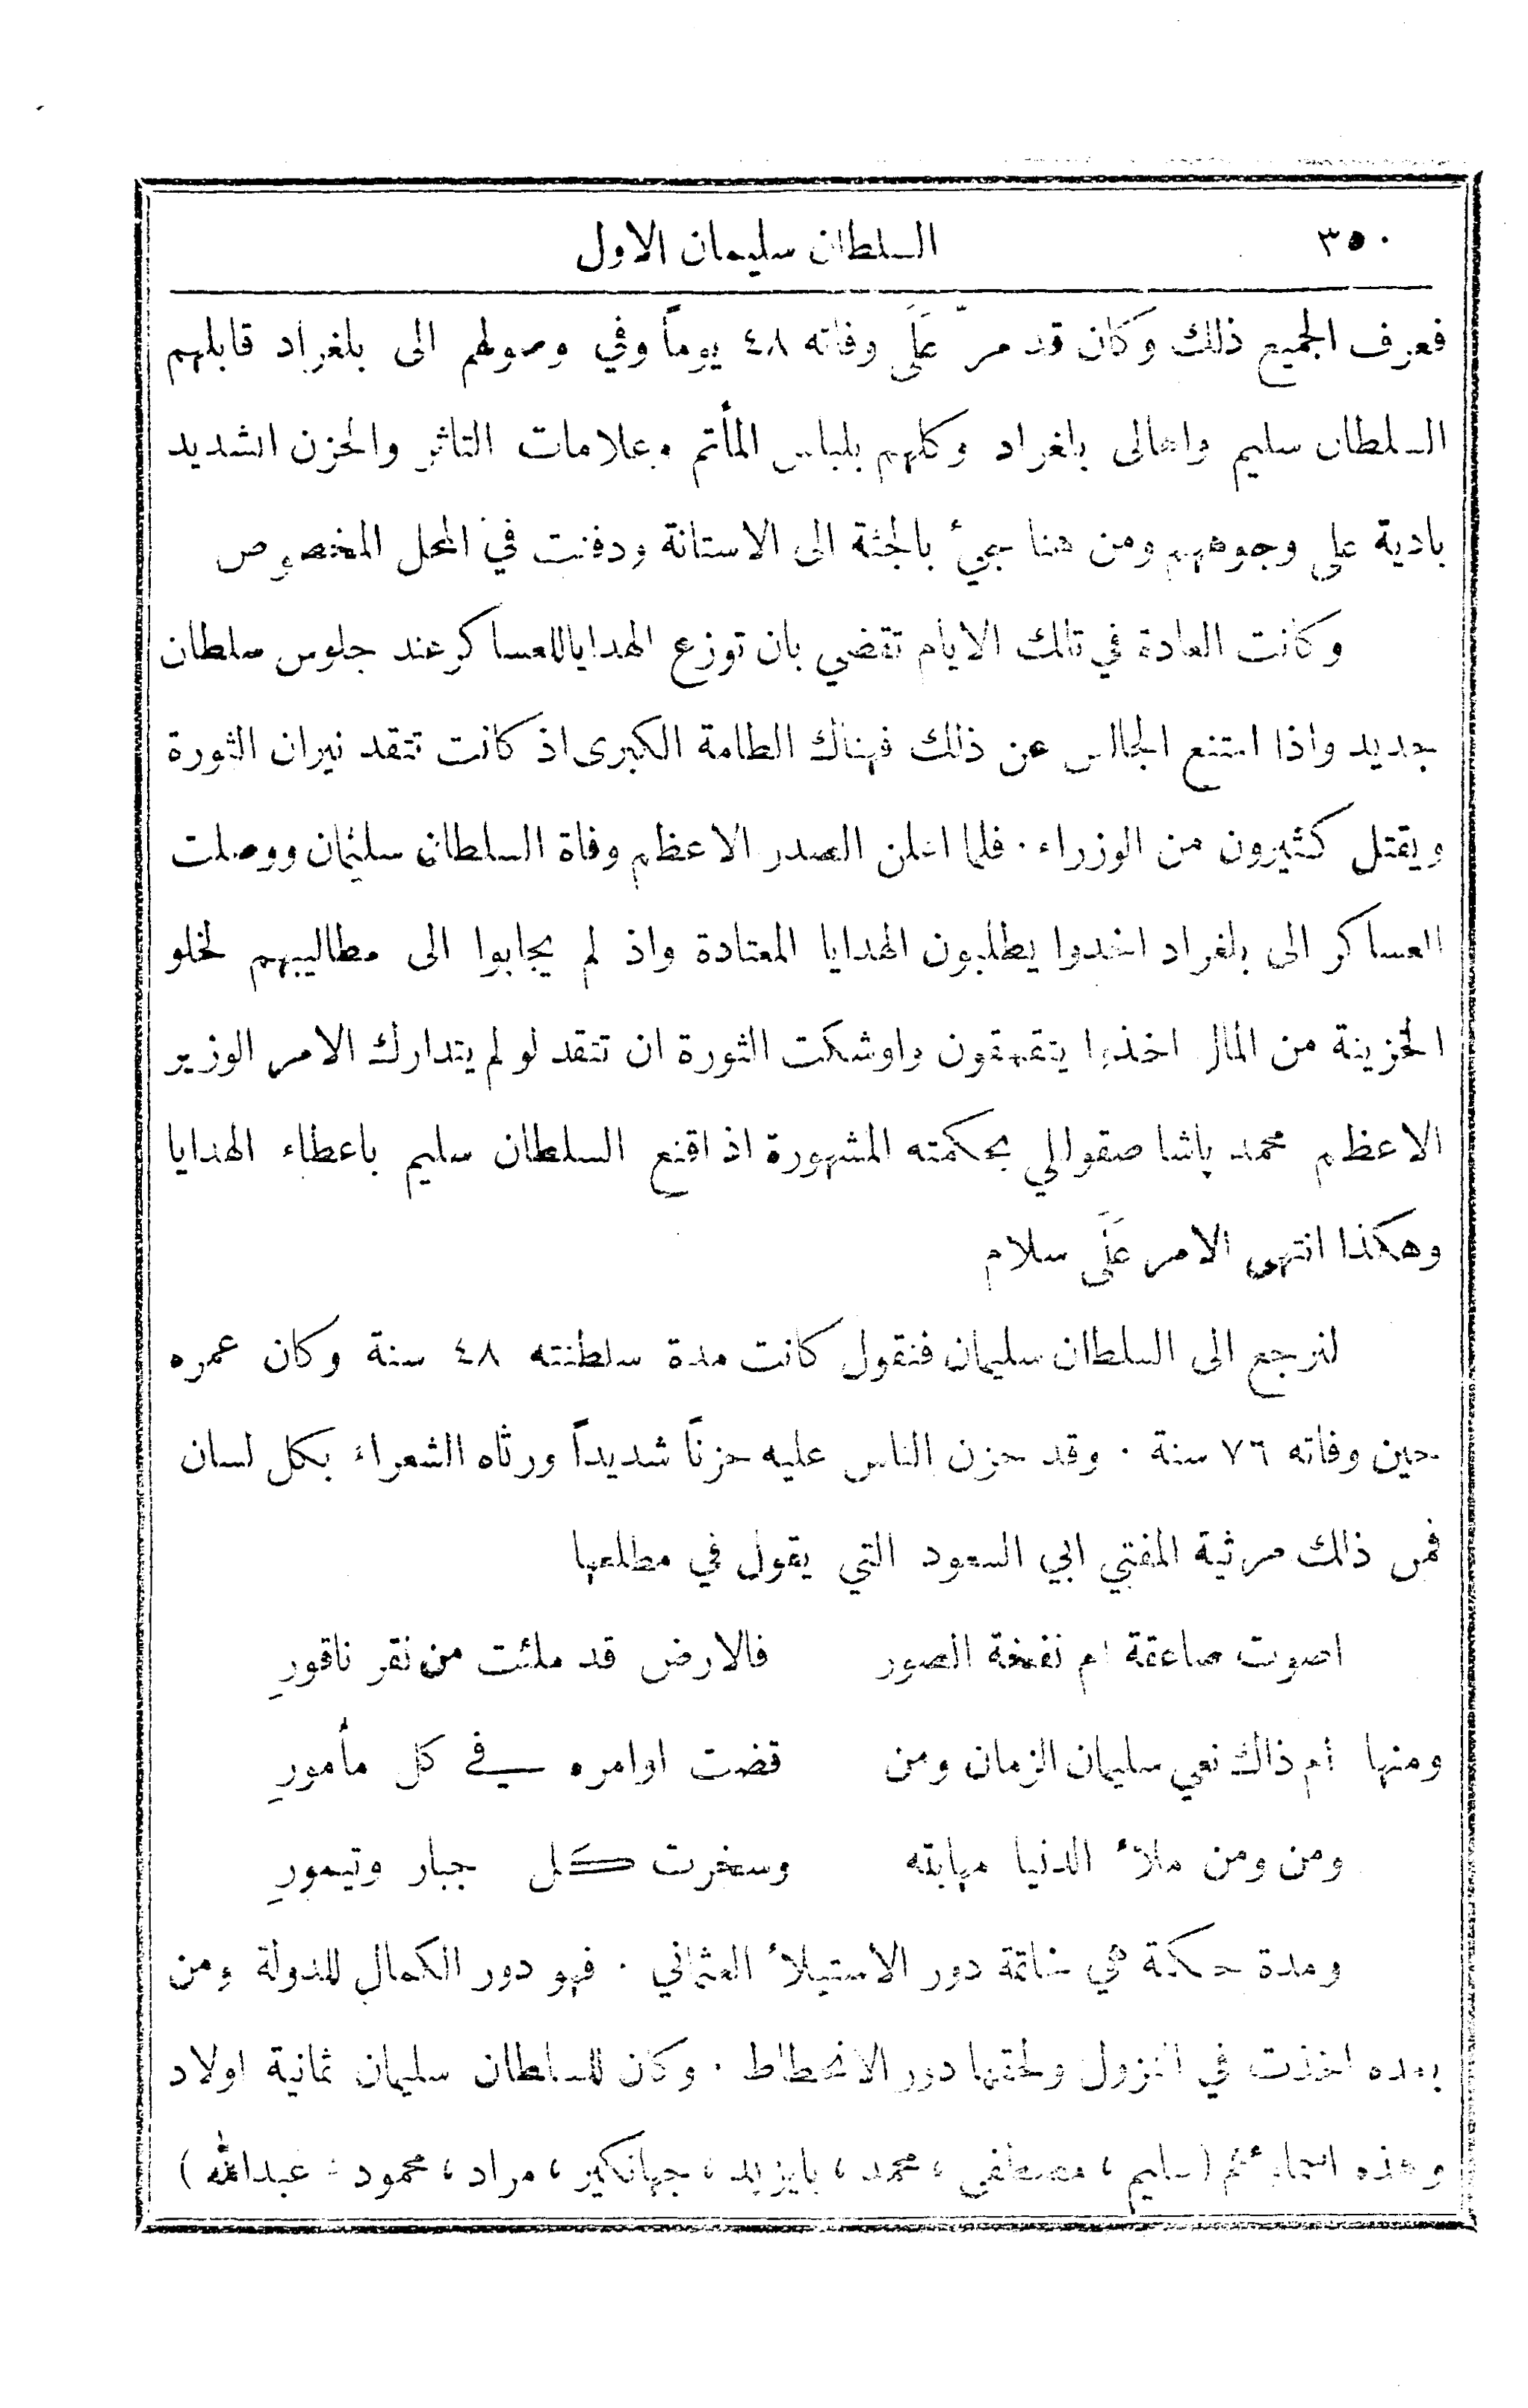 ٣٥٠ السلطان سليمان الاول
فعرف الجميع ذلك وكان قد مرّ عَلَى وفاته ٤٨ يوماً وفي وصولهم الى بلغراد قابلهم
السلطان سليم واهالى بلغراد وكلهم بلباس المأتم وعلامات التاثر والحزن الشديد
بادية على وجوههم ومن هنا جيء بالجثة الى الاستانة ودفنت في المحل المخصوص
وكانت العادة في تلك الايام تقضي بان توزع الهدايا للعساكر عند جلوس سلطان
جديد واذا امتنع الجالس عن ذلك فهناك الطامة الكبرى اذ كانت تتقد نيران الثورة
ويقتل كثيرون من الوزراء. فلما اعلن الصدر الاعظم وفاة السلطان سليمان ووصلت
العساكر الى بلغراد اخذوا يطلبون الهدايا المعتادة واذ لم يجابوا الى مطاليبهم لخلو
الخزينة من المال اخذوا يتقهقون واوشكت الثورة ان تتقد لو لم يتدارك الامر الوزير
الاعظم محمد باشا صقوالي بحكمته المشهورة اذ اقنع السلطان سليم باعطاء الهدايا
وهكذا انتهى الامر عَلَى سلام
لنرجع الى السلطان سليمان فنقول كانت مدة سلطنته ٤٨ سنة وكان عمره
حين وفاته ٧٦ سنة. وقد حزن الناس عليه حزناً شديداً ورثاه الشعراء بكل لسان
فمن ذلك مرثية المفتي ابي السعود التي يقول في مطلعها
اصوت صاعقة ام نفخة الصور فالارض قد ملئت من نقر ناقورِ
ومنها ام ذاك نعي سليمان الزمان ومن قضت اوامره في كل مأمورِ
ومن ومن ملأ الدنيا مهابته وسخرت كل جبار وتيمورِ
ومدة حكمة هي خاتمة دور الاستيلاء العثماني. فهو دور الكمال للدولة ومن
بعده اخذت في النزول ولحقها دور الانحطاط. وكان للسلطان سليمان ثمانية اولاد
وهذه اسماؤهم (سليم، مصطفى، محمد، بايزيد، جهانكير، مراد، محمود، عبدالله)